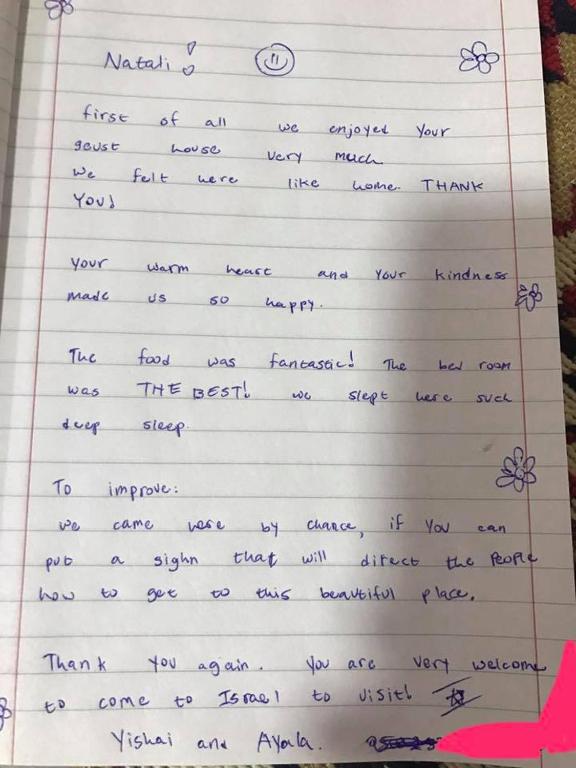 Natali!
first of all we enjoyed your
geust house very much
we felt here like home. THANK
YOU!
Your warm heart and your kindness
made us so happy.
The food was fantastic! The bed room
was THE BEST! we slept here such
deep sleep.
To improve:
we came here by chance, if you can
put a sighn that will direct the people
how to get to this beautiful place.
Thank you again. You are very welcome
to come to Israel to visit!
Yishai and Ayala.